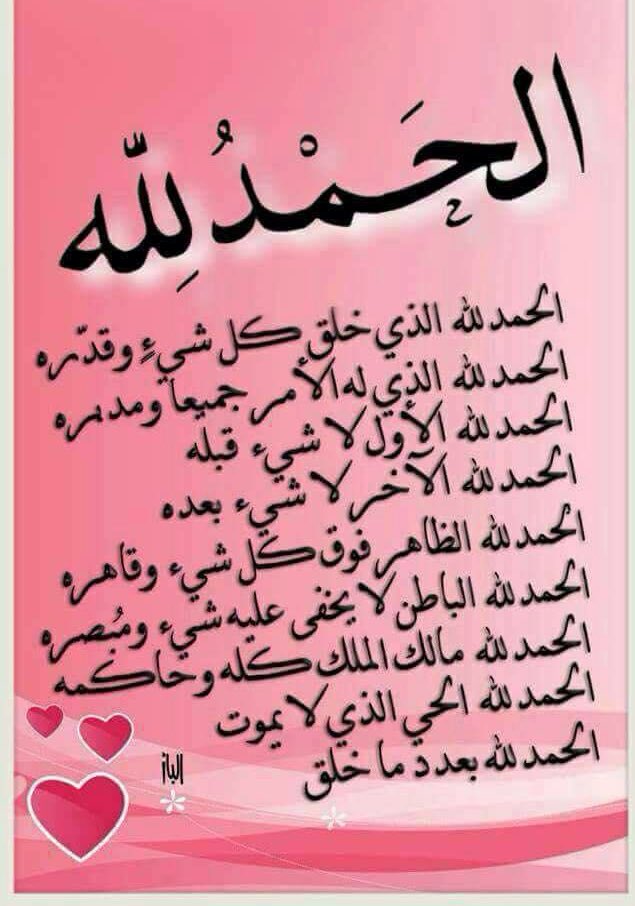 الحَمْدُ لِلّه
الحمد لله الذي خلق كل شيءٍ وقدّره
الحمد لله الذي له الأمر جميعا ومدبره
الحمد لله الأول لا شيء قبله
الحمد لله الآخر لا شيء بعده
الحمد لله الظاهر فوق كل شيء وقاهره
الحمد لله الباطن لا يخفى عليه شيء ومُبصره
الحمد لله مالك الملك كله وحاكمه
الحمد لله الحي الذي لا يموت
الحمد لله بعدد ما خلق
الباز